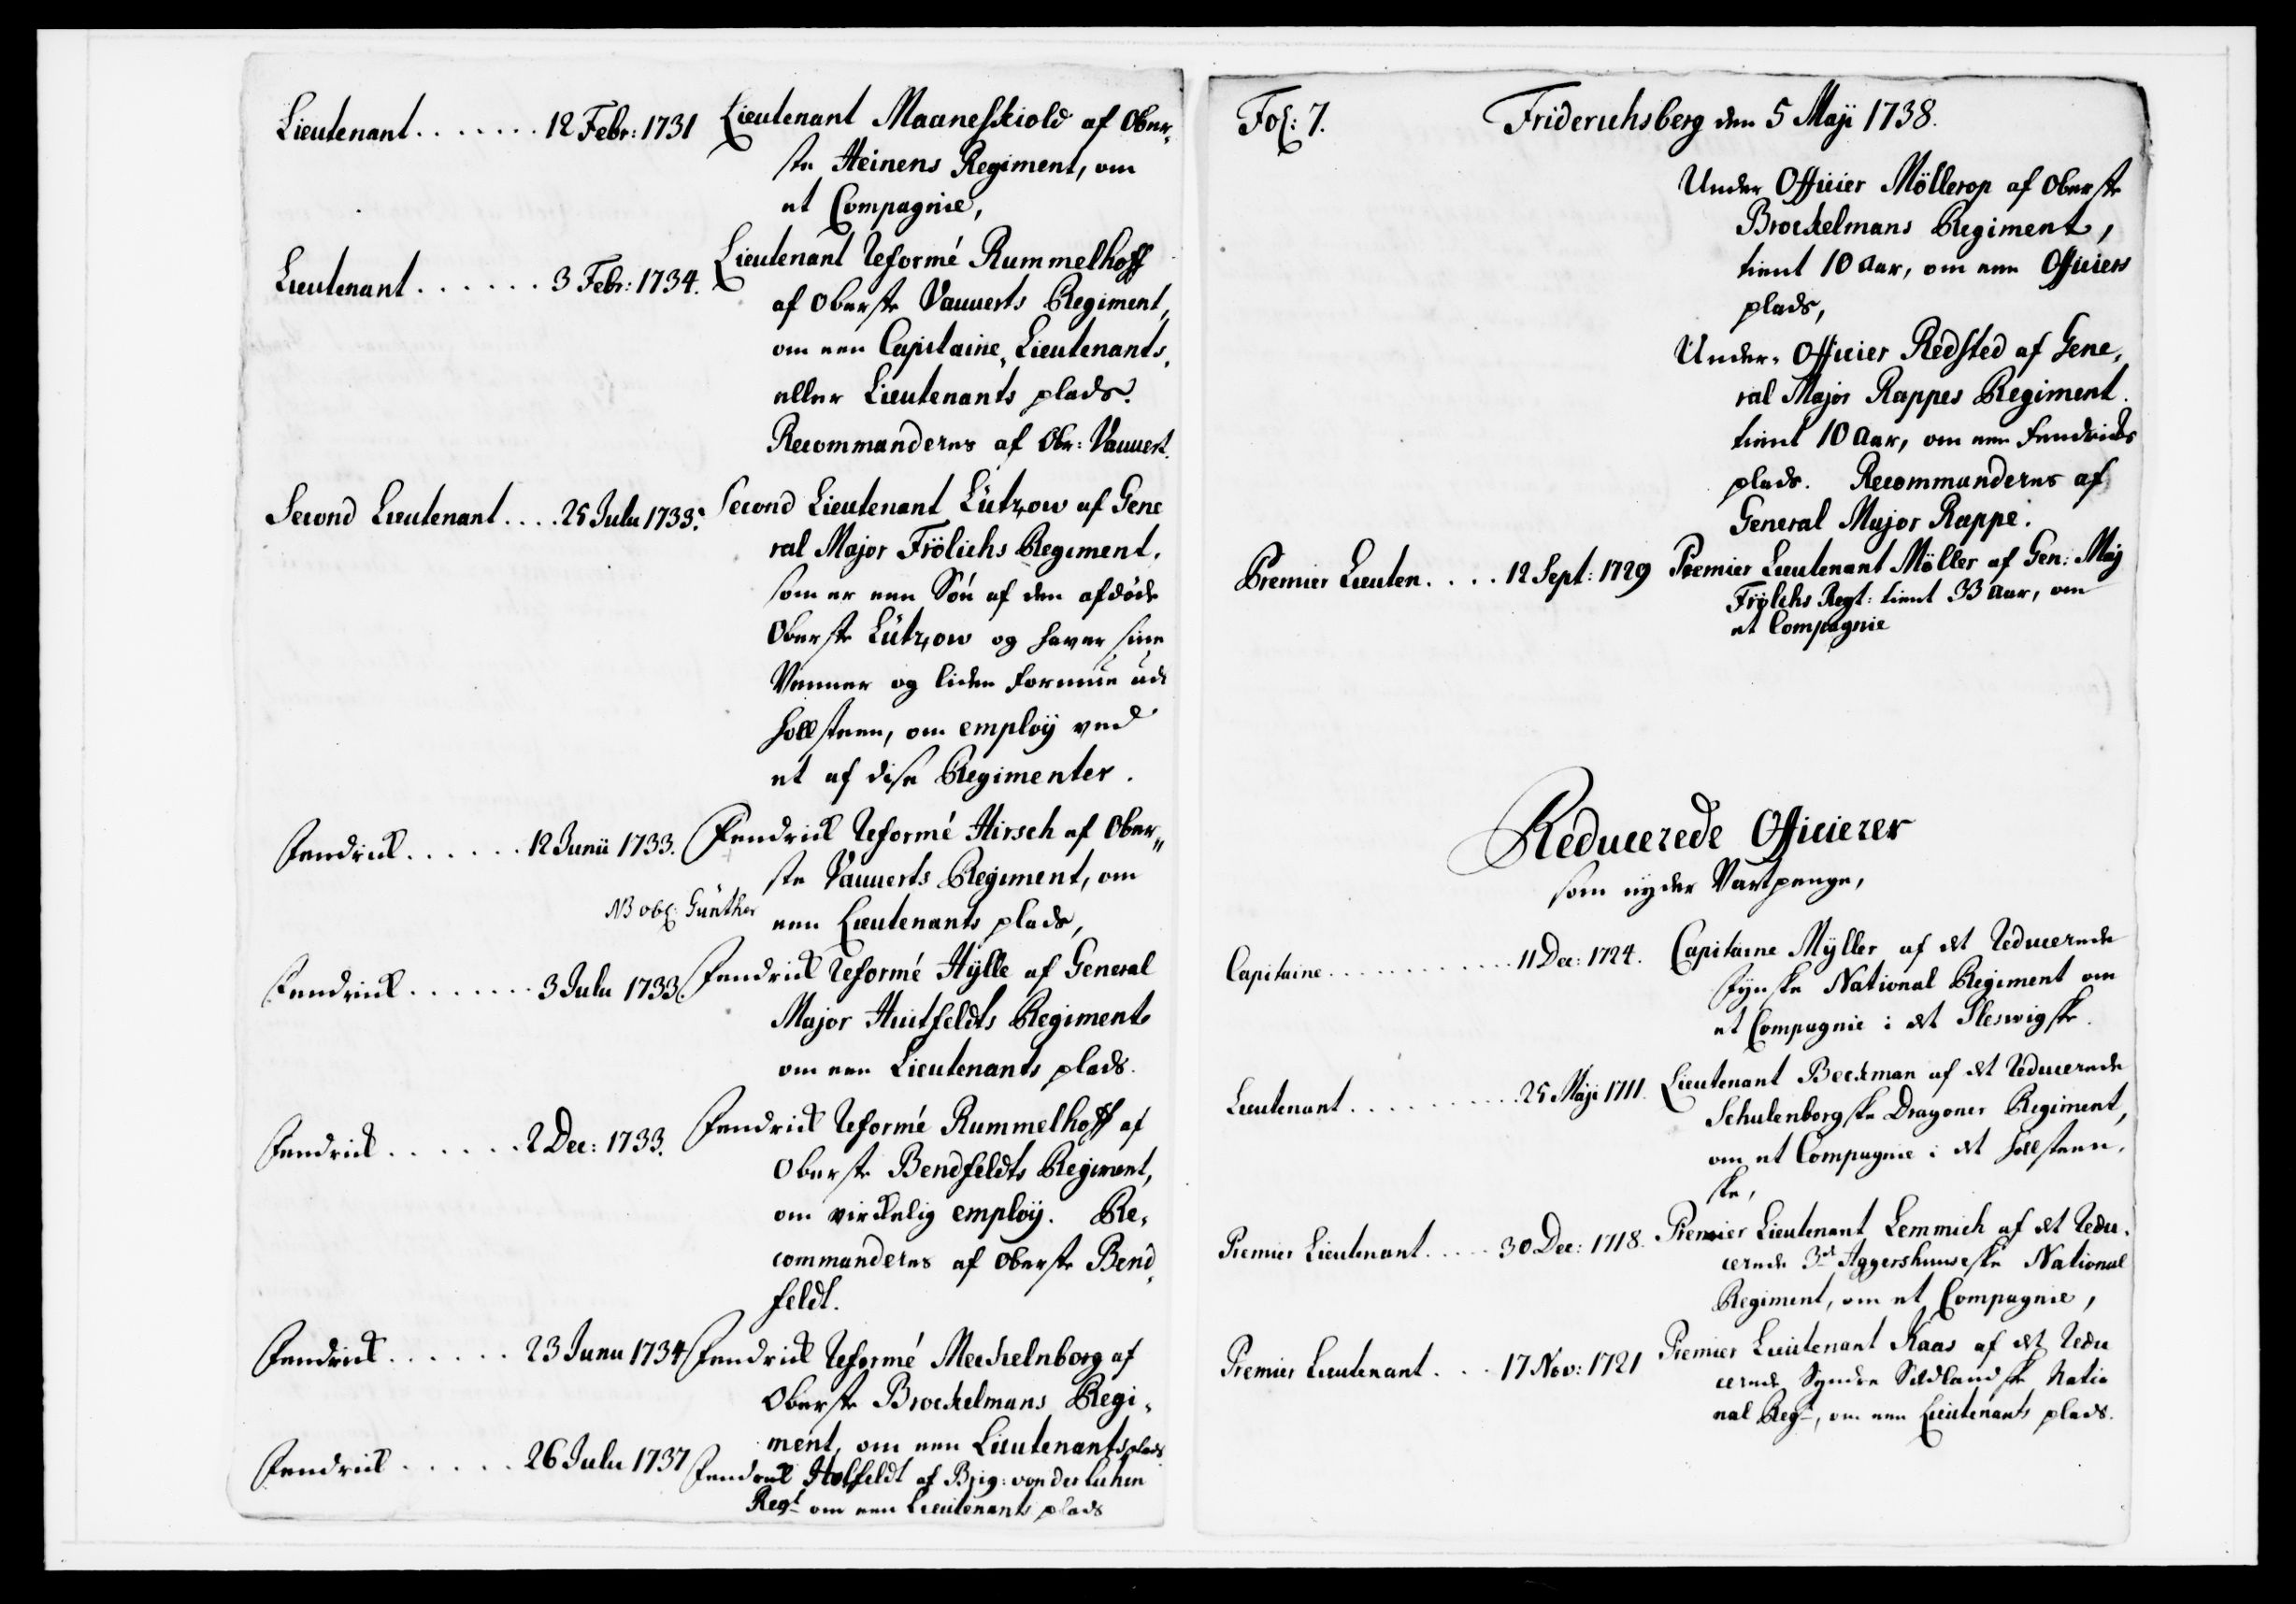 Lieutenant . . . . . . . 12 Febr: 1731 Lieutenant Maaneskiold af Ober,
ste Heinens Regiment, om
et Compagnie,
Lieutenant . . . . . . 3 Febr: 1734. Lieutenant Reformé Rummelhoff
af Oberste Vauuerts Regiment,
om een Capitaine, Lieutenants,
eller Lieutenants plads.
Recommanderes af Obr: Vauuert.
Second Lieutenant . . . . 25 Julii 1733. Second Lieutenant Lützow af Gene
ral Major Frölichs Regiment,
som er een Sön af den afdöde
Oberste Lützow og haver sine
Venner og liden formue udi
Hollsteen, om employ ved
et af dise Regimenter.
Fendrick . . . . . . 12 Junii 1733. Fendrick Reformé Hirsch af Ober,,
ste Vauuerts Regiment, om
NB obs: Günther
een Lieutenants plads,
Fendrick . . . . . . . 3 Julii 1733. Fendrick Reformé Hÿlle af General
Major Huitfeldts Regiment
om een Lieutenants plads.
Fendrick . . . . . . . 2 Dec: 1733. Fendrick Reformé Rummelhoff af
Oberste Bendfeldts Regiment,
om virckelig employ. Re,
commanderes af Oberste Bend,
feldt.
Fendrick . . . . . . 23 Junii 1734 Fendrick Reformé Meckelnborg af
Oberste Brockelmans Regi,
ment, om een Lieutenants plads
Fendrick . . . . . 26 Julii 1737 Fendrick Holfeldt af Brig: von der Luhen
Regt om een Lieutenants plads
Fol: 7. Friderichsberg den 5 Maji 1738.
Under Officier Möllerop af Oberste
Brockelmans Regiment,
tient 10 Aar, om een Officiers
plads,
Under, Officier Redsted af Gene,
ral Major Rappes Regiment.
tient 10 Aar, om een Fendricks
plads. Recommanderes af
General Major Rappe.
Premier Lieuten. . . . 12 Sept: 1729 Premier Lieutenant Möller af Gen: Maj
Frölichs Regt: tient 33 Aar, om
et Compagnie
Reducerede Officierer
som nyder Vartpenge,
Capitaine . . . . . . . . . . . . 11 Dec: 1724. Capitaine Mÿller af det Reducerede
Fynske National Regiment om
et Compagnie i det Sleswigske.
Lieutenant . . . . . . . . . . . 25 Maji 1711. Lieutenant Beckman af det Reducerede
Schulenborgske Dragoner Regiment,
om et Compagnie i det Hollsteen,
ske,
Premier Lieutenant . . . . . 30 Dec: 1718. Premier Lieutenant Lemmich af det Redu,
cerede 3de Aggershuuseske National
Regiment, om et Compagnie,
Premier Lieutenant . . . 17 Nov: 1721 Premier Lieutenant Kaas af det Redu
cerede Syndre Siellandske Natio
nal Regt, om een Lieutenants plads.